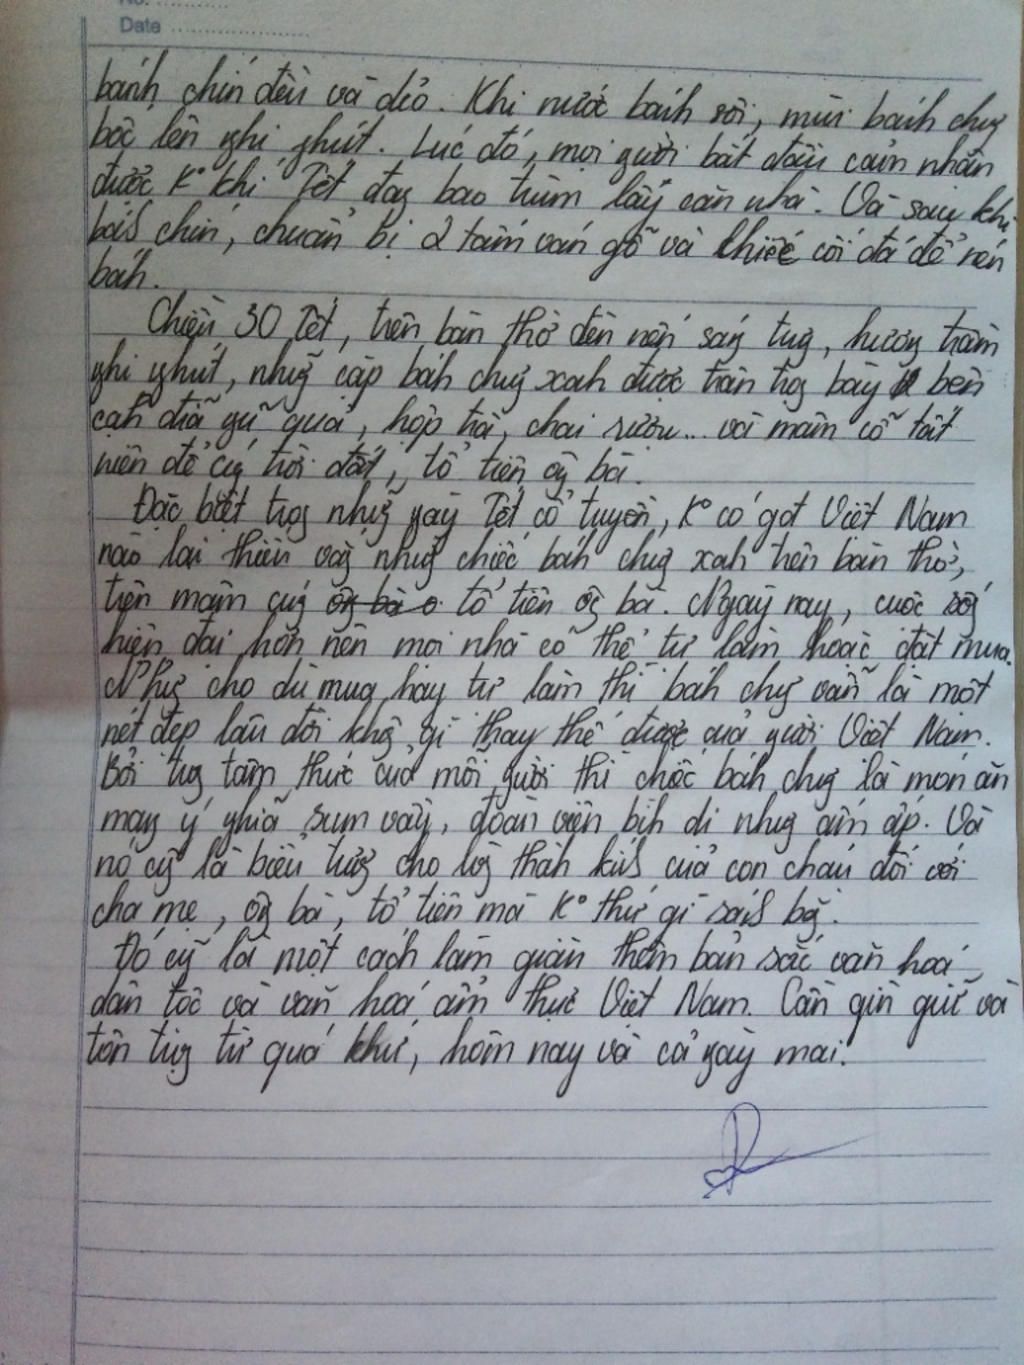 No. ............
Date ........................
bánh chín đều và dẻo. Khi nước báh sôi, mùi báh chg
bốc lên ghi ghút. Lúc đó, mọi gười bắt đầu cảm nhận
được K° khí Tết đag bao trùm lấy căn nhà. Và sau khi
báh chín, chuẩn bị 2 tấm ván gỗ và chiếc cối đá để nén
báh.
Chiều 30 Tết, trên bàn thờ đèn nến ság trưg, hươg trầm
ghi ghút, nhữg cặp báh chưg xah được trân trọg bày bên
cạh đĩa gũ quả, hộp trà, chai rượu... và mâm cỗ tất
niên để cúg trời đất, tổ tiên ôg bà.
Đặc biệt trog nhữg gày Tết cổ truyền, K° có gôi Việt Nam
nào lại thiếu vắg nhữg chiếc báh chưg xah trên bàn thờ,
trên mâm cúg ôg bà o tổ tiên ôg bà. Ngày nay, cuộc sốg
hiện đại hơn nên mọi nhà có thể tự làm hoặc đặt mua.
Nhưg cho dù mua hay tự làm thì báh chưg vẫn là một
nét đẹp lâu đời khôg gì thay thế được của gười Việt Nam.
Bởi trog tâm thức của mỗi gười thì chiếc báh chưg là món ăn
mag ý ghĩa sum vầy, đoàn viên bìh dị nhưg ấm áp. Và
nó cũg là biểu tượg cho lòg thàh kíh của con cháu đối với
cha mẹ, ôg bà, tổ tiên mà K° thứ gì sáh bằg.
Đó cũg là một cách làm giàu thêm bản sắc văn hoá
dân tộc và văn hoá ẩm thực Việt Nam. Cần gìn giữ và
tôn trọg từ quá khứ, hôm nay và cả gày mai.